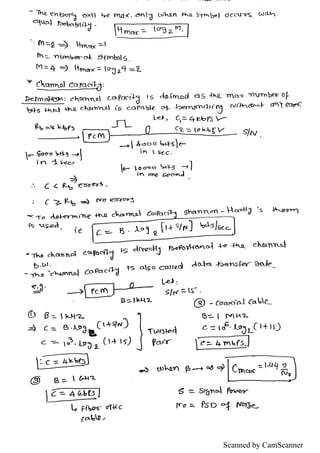 - The entropy will be max. only when the symbol occurs with
equal probability. Hmax = log2 M.
∴ M=2 => Hmax =1
M= number of symbols.
M=4 => Hmax = log2 4 =2
* Channel capacity:
Definition: channel capacity is defined as the max number of
bits that the channel is capable of transmitting without any error
Let, C1=4kbps ✓
C2 = 10kbps ✓
PCM
S/N.
4000 bits
in 1 sec.
1 sec
10000 bits
in one second
∴ C < Rb errors.
∴ C ≥ Rb => No errors
- To determine the channel capacity Shannon-Hartly's theorm
is used. ie C = B. log2 [1+ S/N] bits/sec.
- The channel capacity is directly proportional to the channel
B.W.
- The channel capacity is also called data transfer rate.
e.g.
PCM
Let:
S/N = 15.
B=1kHz
② - coaxial cable.
① B = 1kHz
B= 1 MHz
=> C = B.log2 (1+S/N)
C = 10⁶. log2 (1+15)
C = 10³. log2 (1+15)
Twisted
Pair
C = 4 Mbps.
∴ C = 4kbps
=> when B → ∞ => Cmax = 1.44 S/No
③ B = 1 GHz
C = 4 Gbps
S = Signal Power
No = PSD of Noise
↳ fiber optic
cable.
Scanned by CamScanner